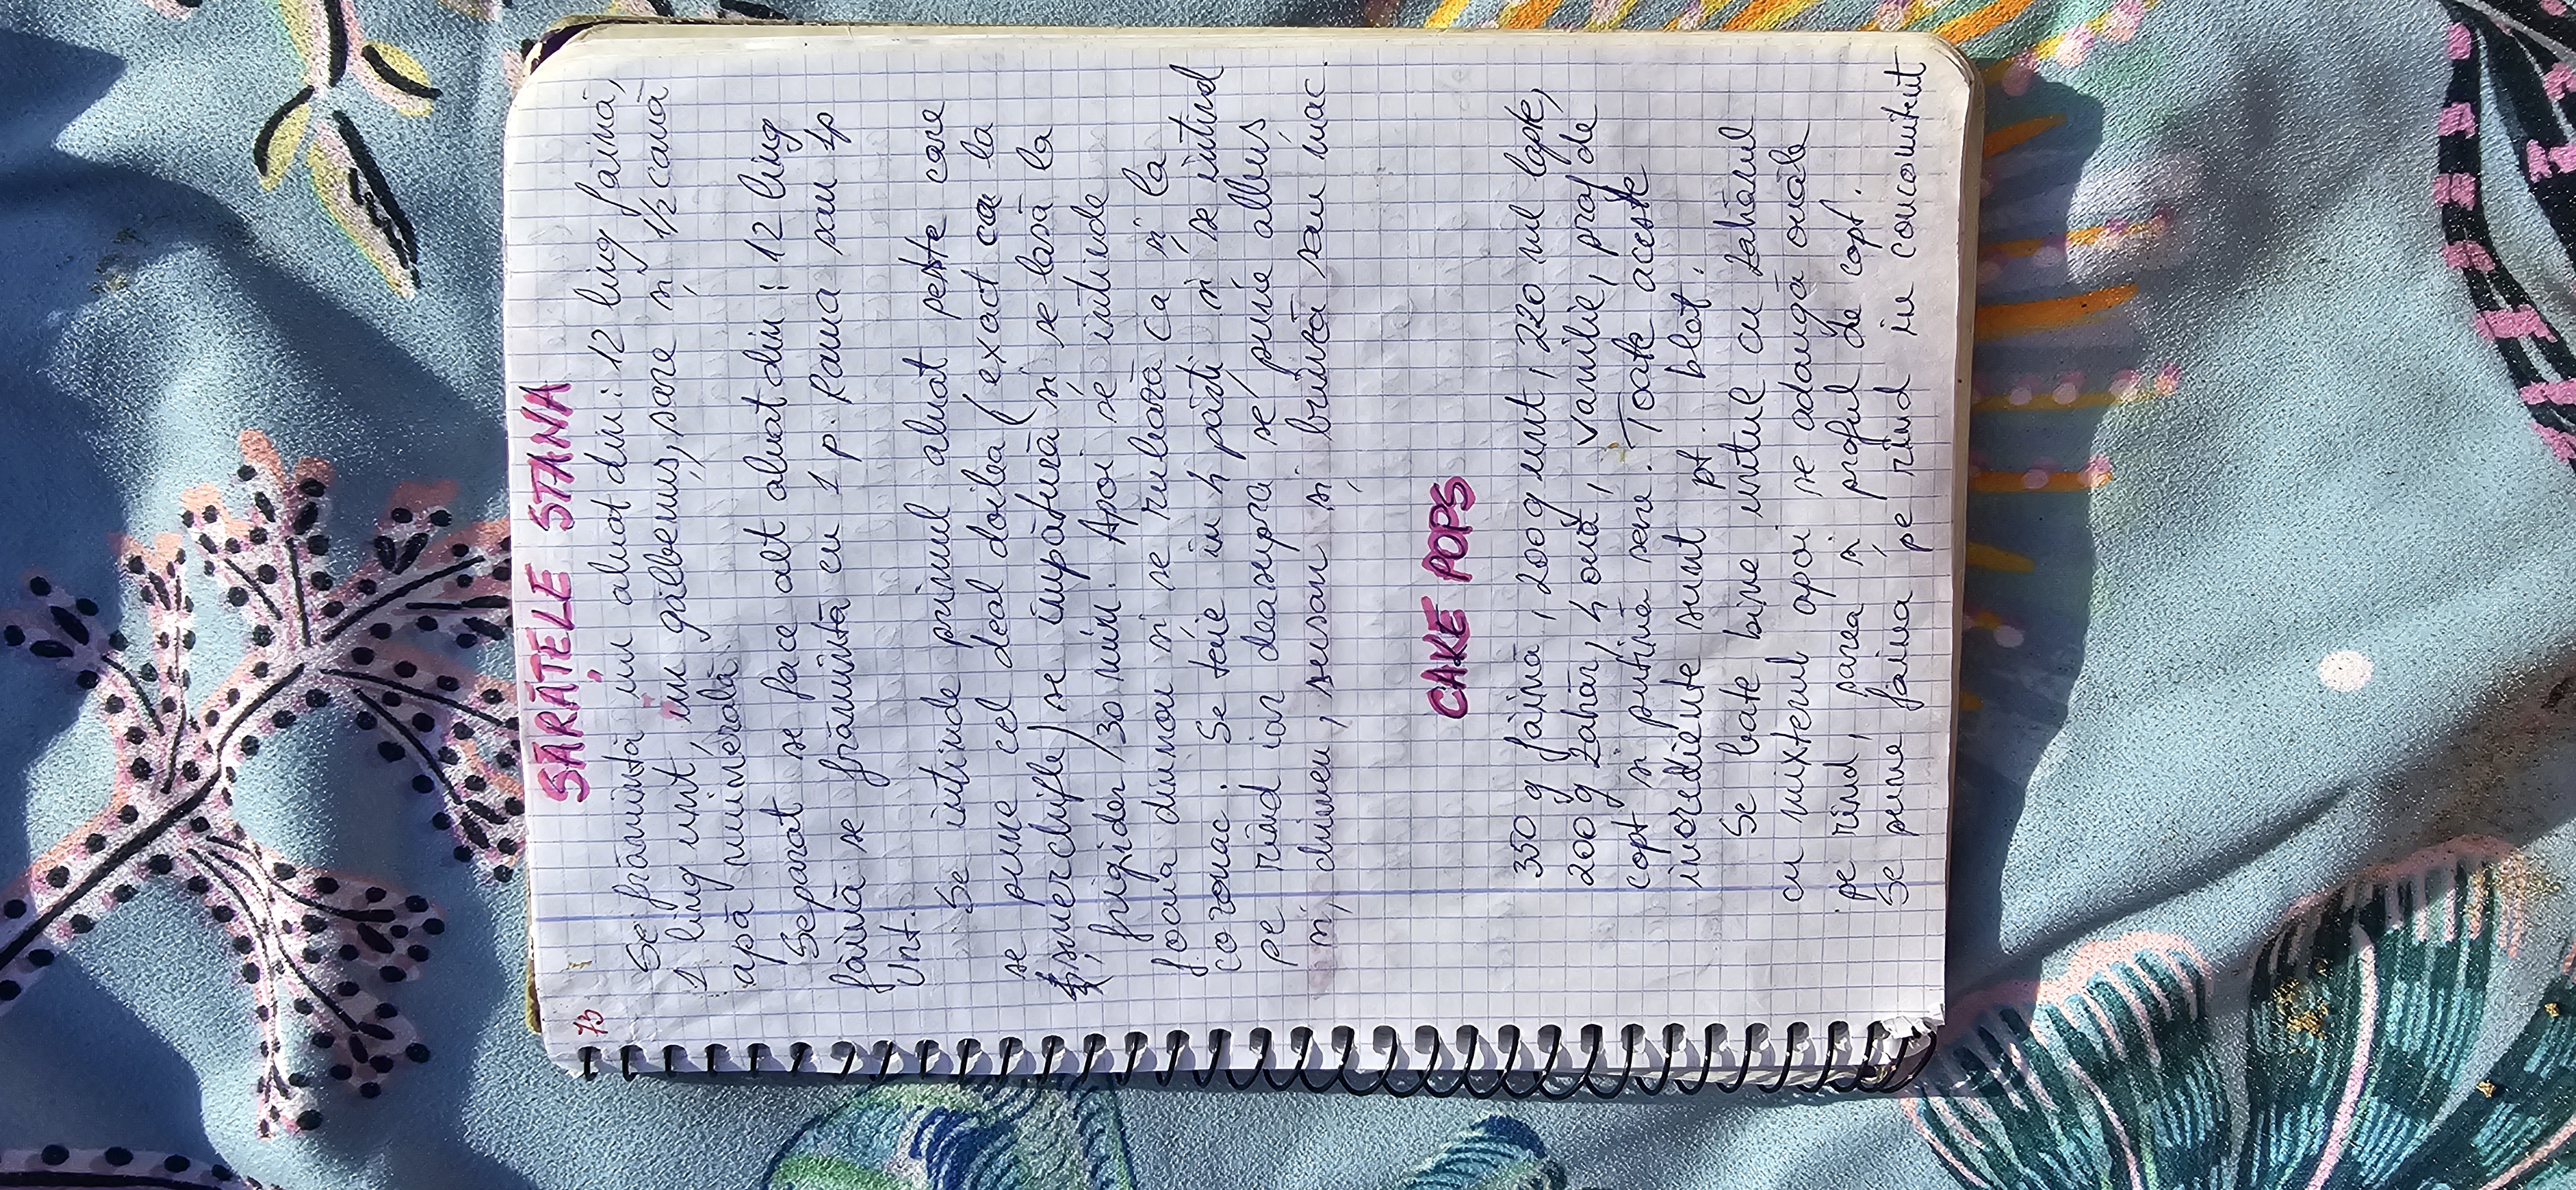 SĂRĂȚELE STANA
73
Se frămîntă un aluat din: 12 ling făină,
1 ling unt, un gălbenuș, sare și 1/2 cană
apă minerală.
Separat se face alt aluat din: 12 ling
făină se frămîntă cu 1 p. Rama sau 1p
Unt.
Se intinde primul aluat peste care
se pune cel deal doilea (exact ca la
șmerchifle) se împătură și se lasă la
frigider 30 min. Apoi se intinde
foaia dinnou și se rulează ca și la
cozonac. Se taie in 4 părți și se intind
pe rînd iar deasupra se pune albuș
și, chimen, susan și brînză sau mac.
CAKE POPS
350 g făină, 200g unt, 220 ml lapte,
200 g zahăr, 4 ouă, vanilie, praf de
copt si puțină sare. Toate aceste
ingrediente sunt pt. blat.
Se bate bine untul cu zahărul
cu mixterul apoi se adaugă ouăle
pe rînd, sarea și praful de copt.
Se pune făina pe rînd in concomitent